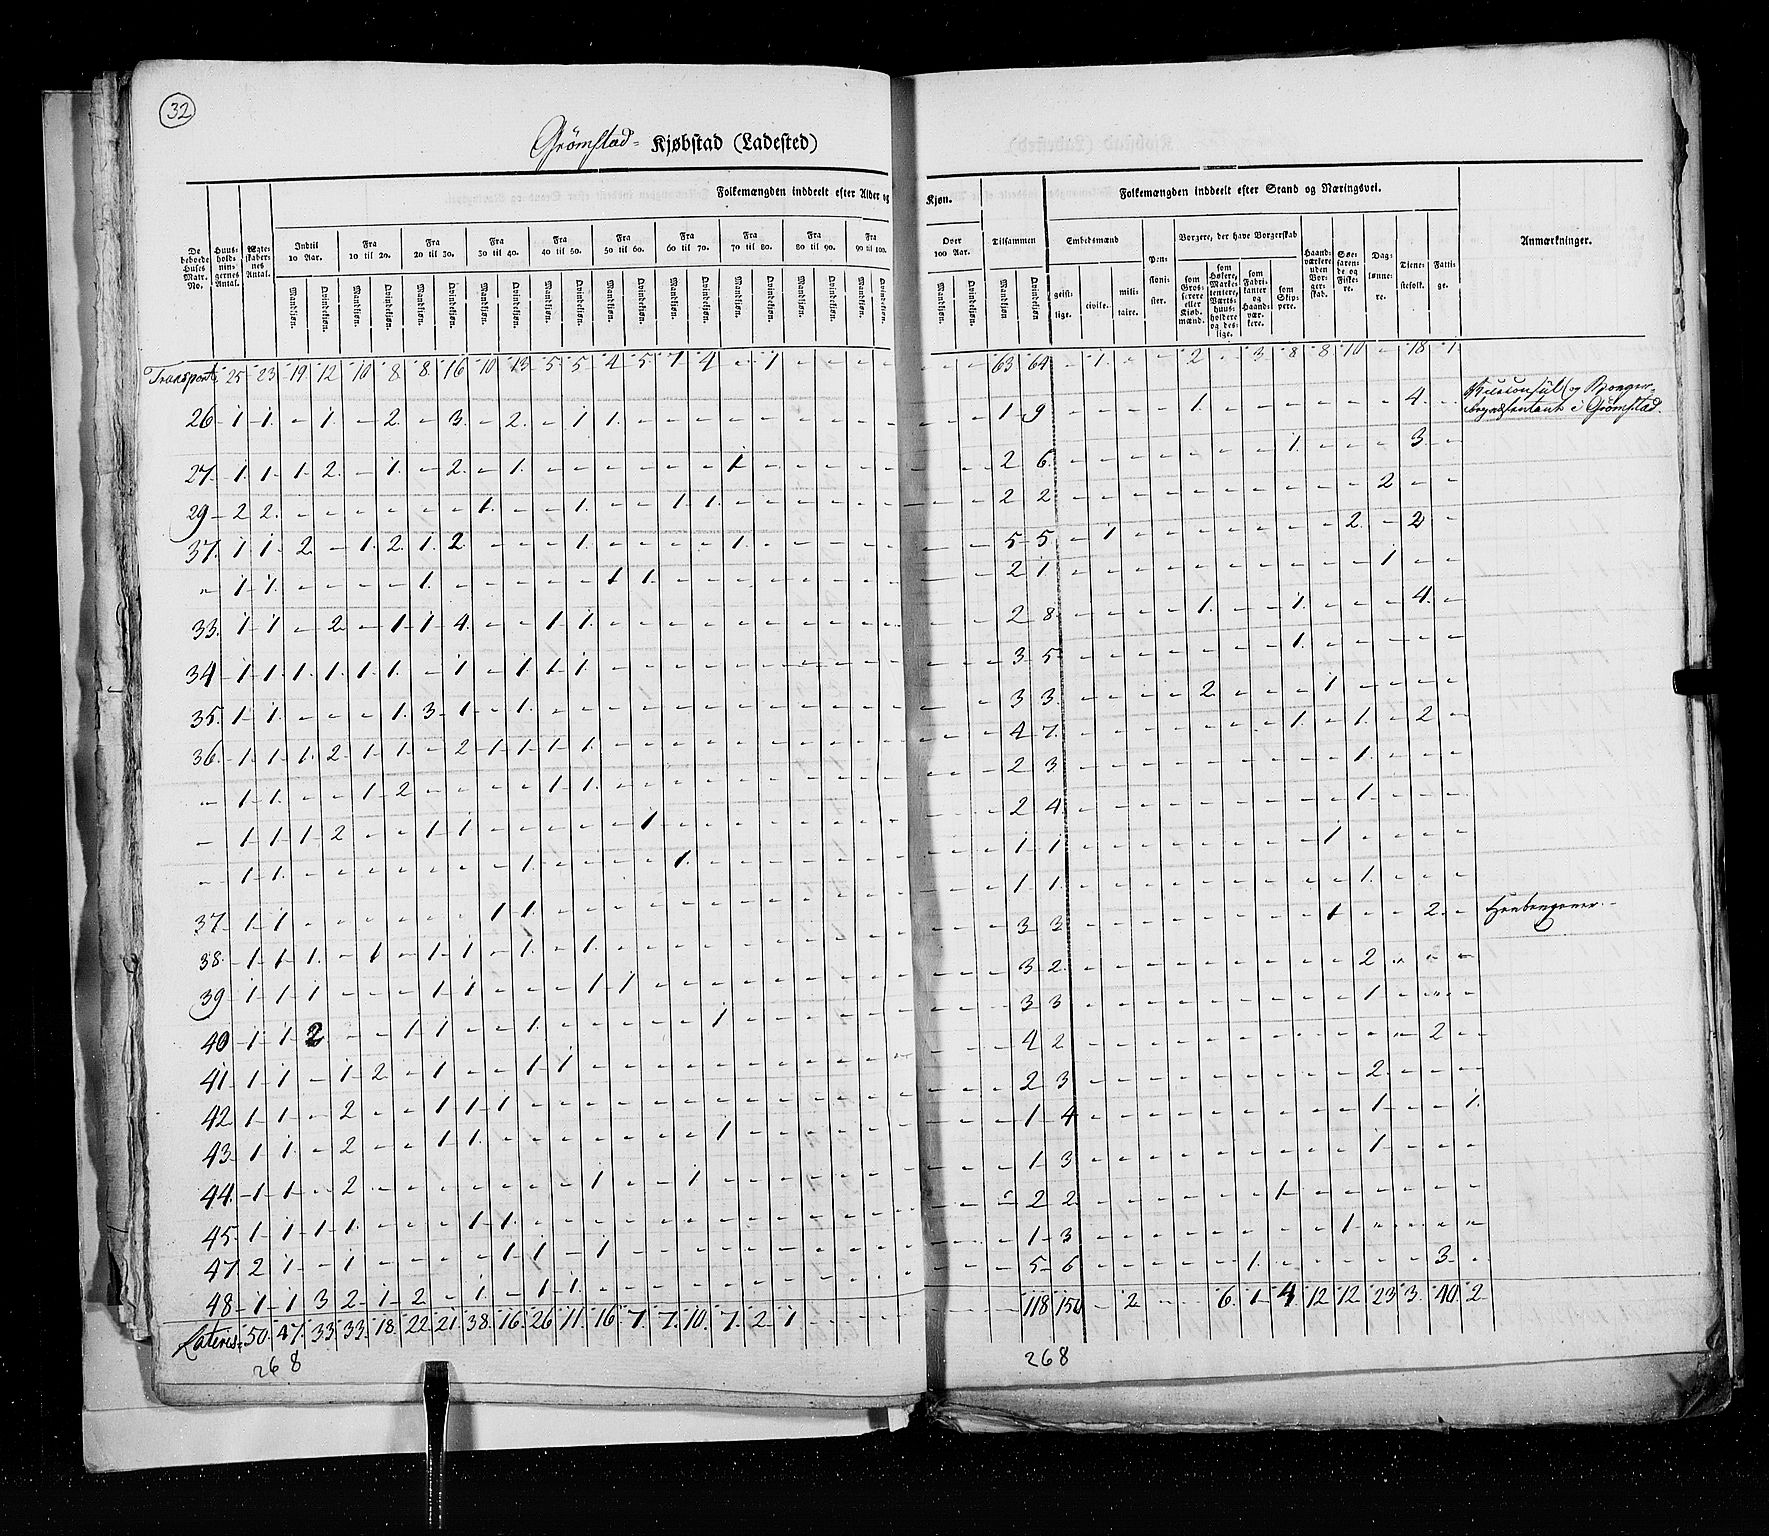 32
Grømstad- Kjøbstad (Ladested)
Folkemængden inddeelt efter Alder og Kjøn.
Folkemængden inddeelt efter Stand og Næringsvei.
De beboede Huses Matr. No.
Huusholdningernes Antal.
Ægteskabernes Antal.
Indtil 10 Aar.
Fra 10 til 20.
Fra 20 til 30.
Fra 30 til 40.
Fra 40 til 50.
Fra 50 til 60.
Fra 60 til 70.
Fra 70 til 80.
Fra 80 til 90.
Fra 90 til 100.
Over 100 Aar.
Tilsammen
Mandkjøn. Qvindekjøn.
Embedsmænd
geistlige. civile. militaire.
Pensionister.
Borgere, der have Borgerskab
som Grosserere eller Kjøbmænd.
som Høkere, Marketentere, Værtshuusholdere og deslige.
som Fabrikanter og Haandværkere.
som Skippere.
Haandværkere uden Borgerskab.
Søefarende og Fiskere.
Daglønnere.
Tjenestefolk.
Fattige.
Anmærkninger.
Transport 25 23 19 12 10 8 8 16 10 13 5 5 4 5 7 4 - 1 - - - 63 64 - 1 - - 2 - 3 8 8 10 - 18 1
26 1 1 - 1 - 2 - 3 - 2 - 1 1 - 1 9 1 4 Viceconsul og Borgerrepræsentant i Grømstad
27 1 1 1 2 - 1 - 2 - 1 1 2 6 1 3
29 2 2 1 1 1 1 2 2 2
37 1 1 2 - 1 2 1 2 1 1 5 5 1 2 2
" 1 1 1 1 1 2 1 1
33 1 1 - 2 - 1 1 4 - - 1 1 2 8 1 1 4
34 1 1 1 1 1 1 - 1 - 1 1 1 3 5 1
35 1 1 - - - 1 3 1 - 1 3 3 2 1
36 1 1 1 2 1 1 - 2 1 1 1 1 4 7 1 1 2
" 1 1 - - 1 2 1 1 2 3 1
- 1 1 1 2 - - 1 1 1 2 4 1
- 1 1 1 1 1 1 1
37 1 1 1 1 1 1 1
38 1 1 1 - 1 - 1 1 - 1 - 1 3 3 1 2
39 1 1 1 - - - 1 1 1 1 3 2 2
40 1 1 2 - - 1 1 - - 1 1 3 3 1
41 1 1 - 1 2 - 1 - - 1 1 4 2 2
42 1 1 - 2 - - 1 1 1 2 3 2
43 1 1 - 2 - - 1 1 1 1 4 1 1
44 1 1 - 2 1 1 1 3 1
45 1 1 1 1 - - - 1 1 2 2 1
47 2 1 - 1 1 1 - 1 1 3 1
48 1 1 3 2 1 2 - 1 - 1 1 5 6 1 3
Lateris 50 47 33 33 18 22 21 38 16 26 11 16 7 7 10 7 2 1 - - - 118 150 - 2 - - 6 1 4 12 12 23 3 40 2
268
268